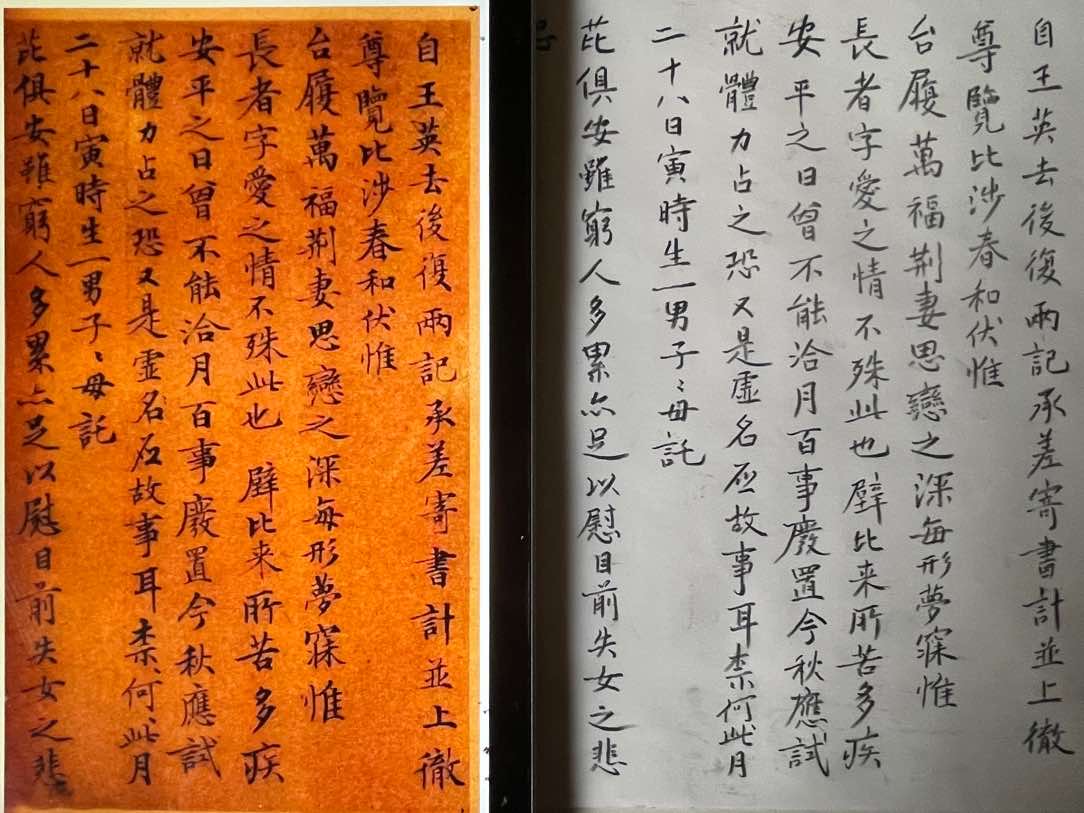 自王英去後復兩記承差寄書計並上徹
尊覽比涉春和伏惟
台履萬福荆妻思戀之深每形夢寐惟
長者字愛之情不殊此也壁比来所苦多疾
安平之日曾不能洽月百事廢置今秋應試
就體力占之恐又是虚名应故事耳柰〻何〻此月
二十八日寅時生一男子〻母託
芘俱安雖窮人多累亦足以慰目前失女之悲
自王英去後復兩記承差寄書計並上徹
尊覽比涉春和伏惟
台履萬福荆妻思戀之深每形夢寐惟
長者字愛之情不殊此也壁比来所苦多疾
安平之日曾不能洽月百事廢置今秋應試
就體力占之恐又是虚名应故事耳柰何此月
二十八日寅時生一男子〻母託
芘俱安雖窮人多累亦足以慰目前失女之悲